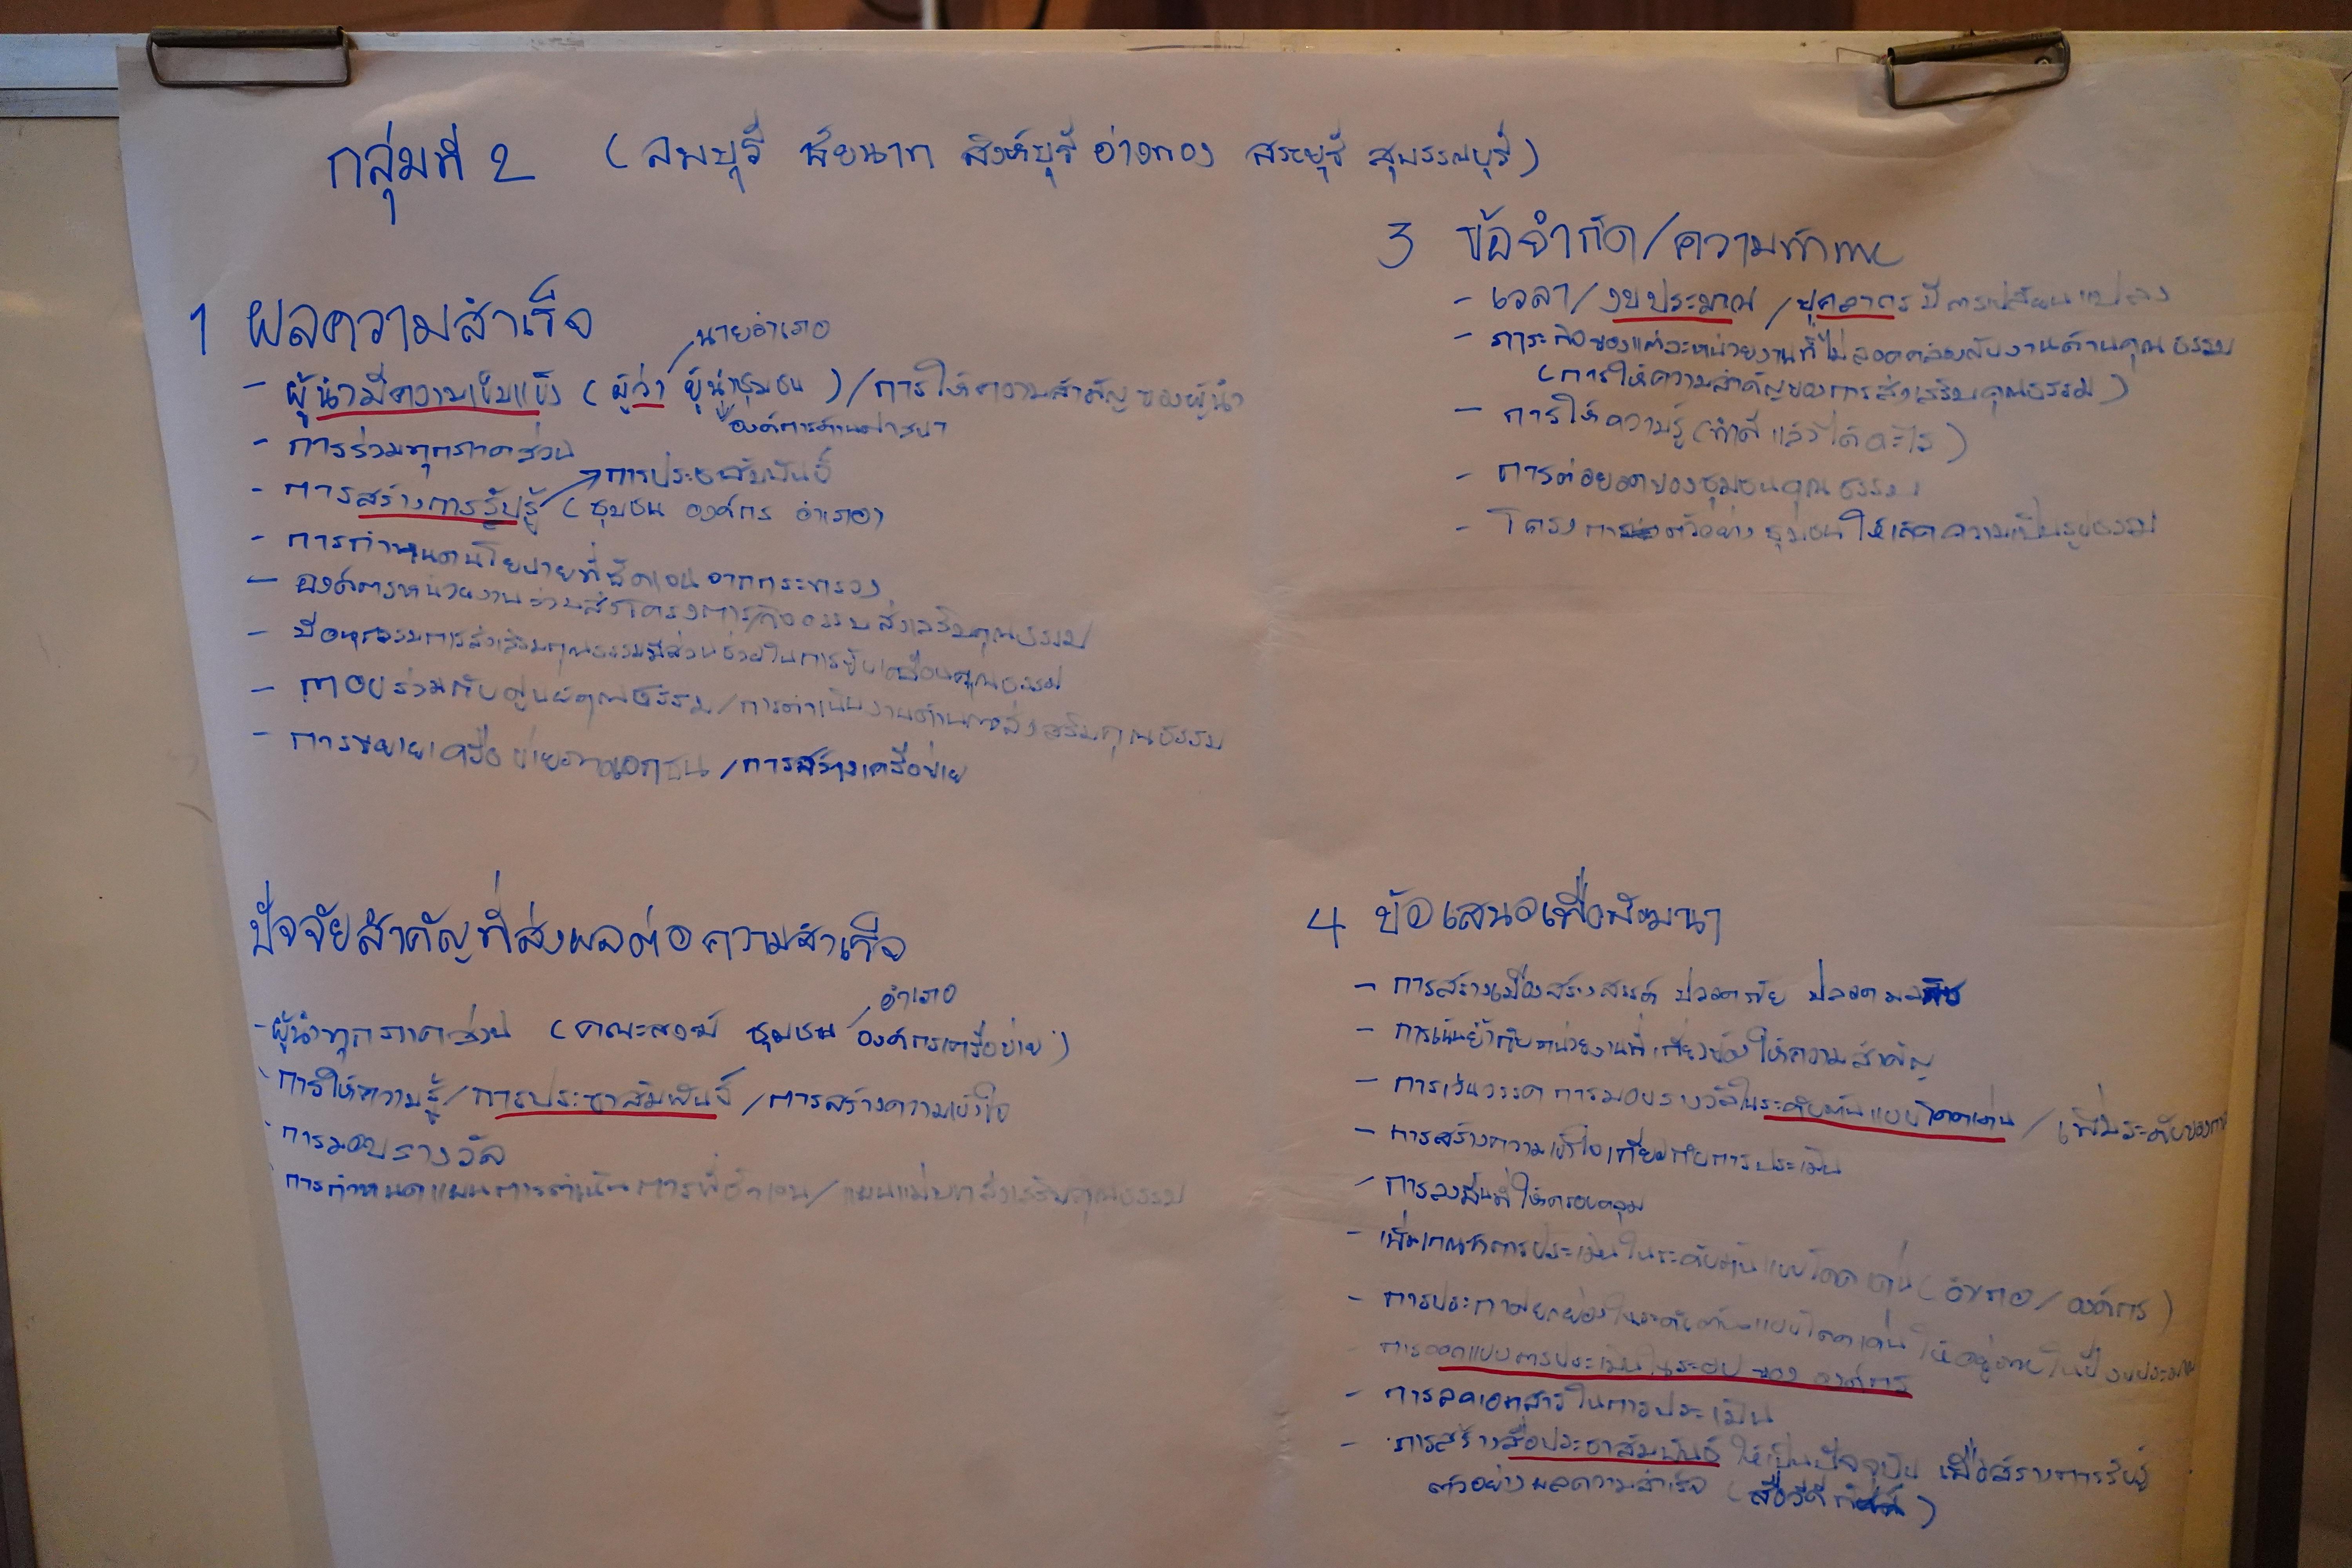 กลุ่มที่ 2 (ลพบุรี ชัยนาท สิงห์บุรี อ่างทอง สระบุรี สุพรรณบุรี)
1 ผลความสำเร็จ
นายอำเภอ
- ผู้นำมีความเข้มแข็ง (ผู้ว่า ผู้นำชุมชน) / การให้ความสำคัญของผู้นำ
องค์การด้านศาสนา
- การร่วมทุกภาคส่วน
การประชาสัมพันธ์
- การสร้างการรับรู้ (ชุมชน องค์กร อำเภอ)
- การกำหนดนโยบายที่ชัดเจน จากกระทรวง
- องค์กรหน่วยงาน โครงการ/กิจกรรม ส่งเสริมคุณธรรม
- มีอนุกรรมการส่งเสริมคุณธรรมมีส่วนช่วยในการขับเคลื่อนคุณธรรม
- ร่วมกับศูนย์คุณธรรม / การดำเนินงานด้านการส่งเสริมคุณธรรม
- การขยายเครือข่ายภาคเอกชน / การสร้างเครือข่าย
ปัจจัยสำคัญที่ส่งผลต่อความสำเร็จ
อำเภอ
- ผู้นำทุกภาคส่วน (คณะสงฆ์ ชุมชน องค์กรเครือข่าย)
- การให้ความรู้ / การประชาสัมพันธ์ / การสร้างความเข้าใจ
- การมอบรางวัล
- การกำหนดแผนการดำเนินการที่ชัดเจน / แผนแม่บทส่งเสริมคุณธรรม
3 ข้อจำกัด/ความท้าทาย
- เวลา / งบประมาณ / บุคลากรมีการเปลี่ยนแปลง
- ภาระกิจของแต่ละหน่วยงานที่ไม่สอดคล้องกับงานด้านคุณธรรม
(การให้ความสำคัญของการส่งเสริมคุณธรรม)
- การให้ความรู้ (ทำดี แล้วได้อะไร)
- การต่อยอดของชุมชนคุณธรรม
- โครงการ ตัวอย่าง ชุมชน ให้เกิดความเป็นรูปธรรม
4 ข้อเสนอเพื่อพัฒนา
- การสร้างเมืองสร้างสรรค์ ปลอดภัย ปลอดมลพิษ
- การเน้นย้ำกับหน่วยงานที่เกี่ยวข้อง ให้ความสำคัญ
- การเว้นวรรค การมอบรางวัลในระดับต้นแบบโดดเด่น / เพิ่มระดับของ
- การสร้างความเข้าใจเกี่ยวกับการประเมิน
- การลงพื้นที่ให้ครอบคลุม
- เพิ่มเกณฑ์การประเมินในระดับต้นแบบโดดเด่น (อำเภอ / องค์กร)
- การประกาศยกย่องในระดับต้นแบบโดดเด่น ให้อยู่ภายในปีงบประมาณ
- การออกแบบการประเมินในระบบ ของ องค์กร
- การลดเอกสารในการประเมิน
- การสร้างสื่อประชาสัมพันธ์ ให้เป็นปัจจุบัน เพื่อสร้างการรับรู้
ตัวอย่างผลความสำเร็จ (สื่อวีดีทัศน์)